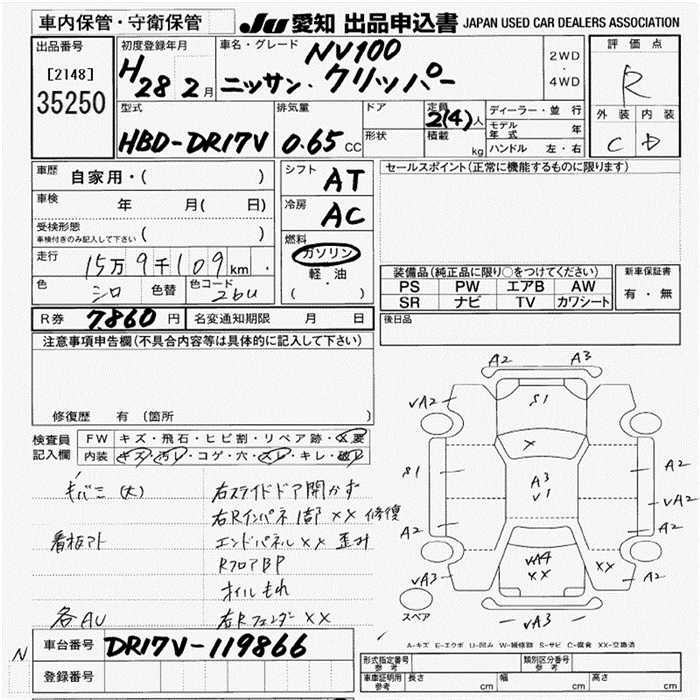 車内保管・守衛保管 JU 愛知 出品申込書 JAPAN USED CAR DEALERS ASSOCIATION
出品番号 [2148] 35250
初度登録年月 H28 2月
車名・グレード NV100
ニッサン・クリッパー
2WD・4WD
評価点 R
外装 内装
C D
型式 HBD-DR17V
排気量 0.65 CC
ドア 形状
定員 2(4)人
積載 kg
ディーラー・並行
モデル年式 年
ハンドル 左・右
車歴 自家用・( )
車検 年 月( 日)
受検形態 ( )
車検付きのみ記入して下さい
走行 15万9千109km
色 シロ 色替 色コード 26U
シフト AT
冷房 AC
燃料 ガソリン
軽・油
( ・ )
セールスポイント(正常に機能するものに限ります)
装備品(純正品に限り○をつけてください)
PS PW エアB AW
SR ナビ TV カワシート
新車保証書
有・無
後日品
R券 7,860円 名変通知期限 月 日
注意事項申告欄(不具合内容等は具体的に記入して下さい)
修復歴 有 〔箇所 〕
検査員記入欄
FW キズ・飛石・ヒビ割・リペア跡・X要
内装 キズ・汚レ・コゲ・穴・スレ・キレ・破レ
右スライドドア開かず
右Rインパネ 1部 XX 修復
看板アト エンドパネル XX 歪み
RフロアBP
オイルもれ
各AU 右Rフェンダー XX
A2 A3
VA2 S1
X
S1 A3 V1 A2
VA2
A2 A2
VA4 XX XX
VA3 A2
スペア VA3
A-キズ E-エクボ U-凹み W-補修跡 S-サビ C-腐食 XX-交換済
N 車台番号 DR17V-119866
登録番号
形式指定番号 参考 類別区分番号 参考
車庫証明用 参考 長さ cm 幅 cm 高さ cm